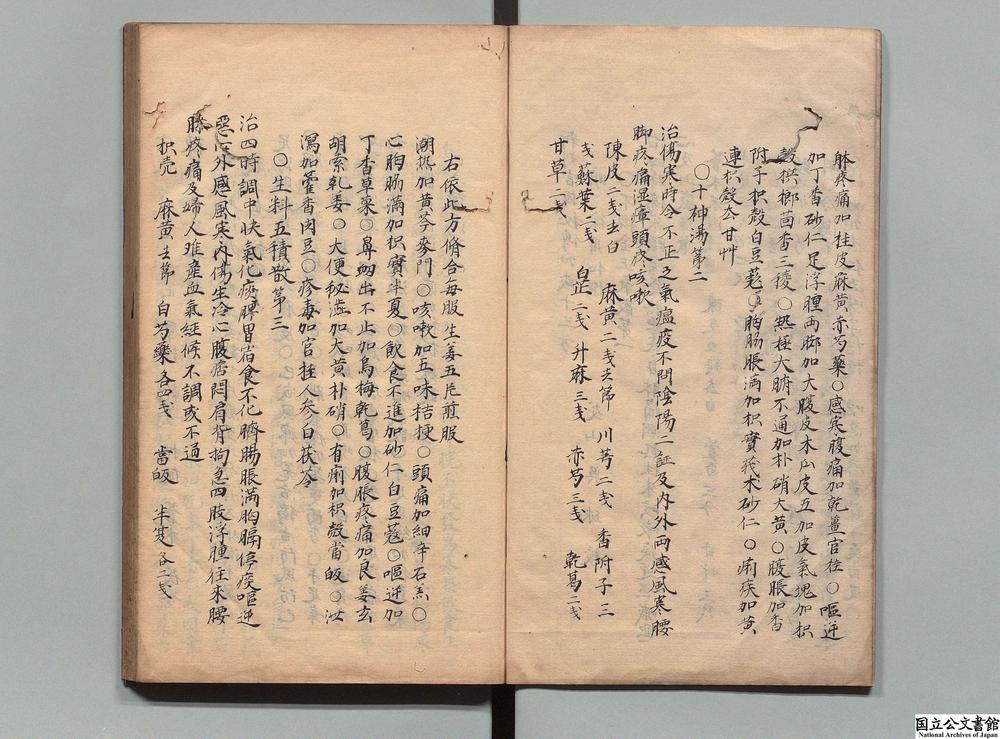 躰疼痛加桂皮麻黄赤芍藥〇感寒腹痛加乾薑官桂〇嘔逆
加丁香砂仁足浮腫両脚加大腹皮木瓜皮五加皮氣塊加枳
殻槟榔茴香三稜〇熱極大腑不通加朴硝大黄〇腹脹加香
附子枳殻白豆蔲〇胸膓脹満加枳實莪朮砂仁〇痢疾加黄
連枳殻去甘艸
〇十神湯第二
治傷寒時令不正之氣瘟疫不問陰陽二証及内外両感風寒腰
脚疼痛湿瘴頭疼咳嗽
陳皮二戔去白 麻黄二戔去節 川芎二戔 香附子三
戔蘇葉二戔 白芷二戔 升麻三戔 赤芍三戔 乾葛二戔
甘草二戔
右依此方脩合毎服生姜五片煎服
潮热加黄芩麥門〇咳嗽加五味桔梗〇頭痛加細辛石羔〇
心胸膓満加枳實半夏〇飲食不進加砂仁白豆蔲〇嘔逆加
丁香草菓〇鼻衂出不止加烏梅乾葛〇腹脹疼痛加良姜玄
胡索乾姜〇大便秘澁加大黄朴硝〇有痢加枳殻當皈〇泄
瀉加藿香肉豆〇疹毒加官桂人参白茯苓
〇生料五積散第三
治四時調中快氣化痰脾胃宿食不化臍膓脹満胸膈停痰嘔逆
惡心外感風寒内傷生冷心腹痞悶肩背拘急四肢浮腫往来腰
膝疼痛及婦人难産血氣經候不調或不通
枳壳 麻黄去節 白芍藥各四戔 當皈 半夏各二戔
国立公文書館
National Archives of Japan